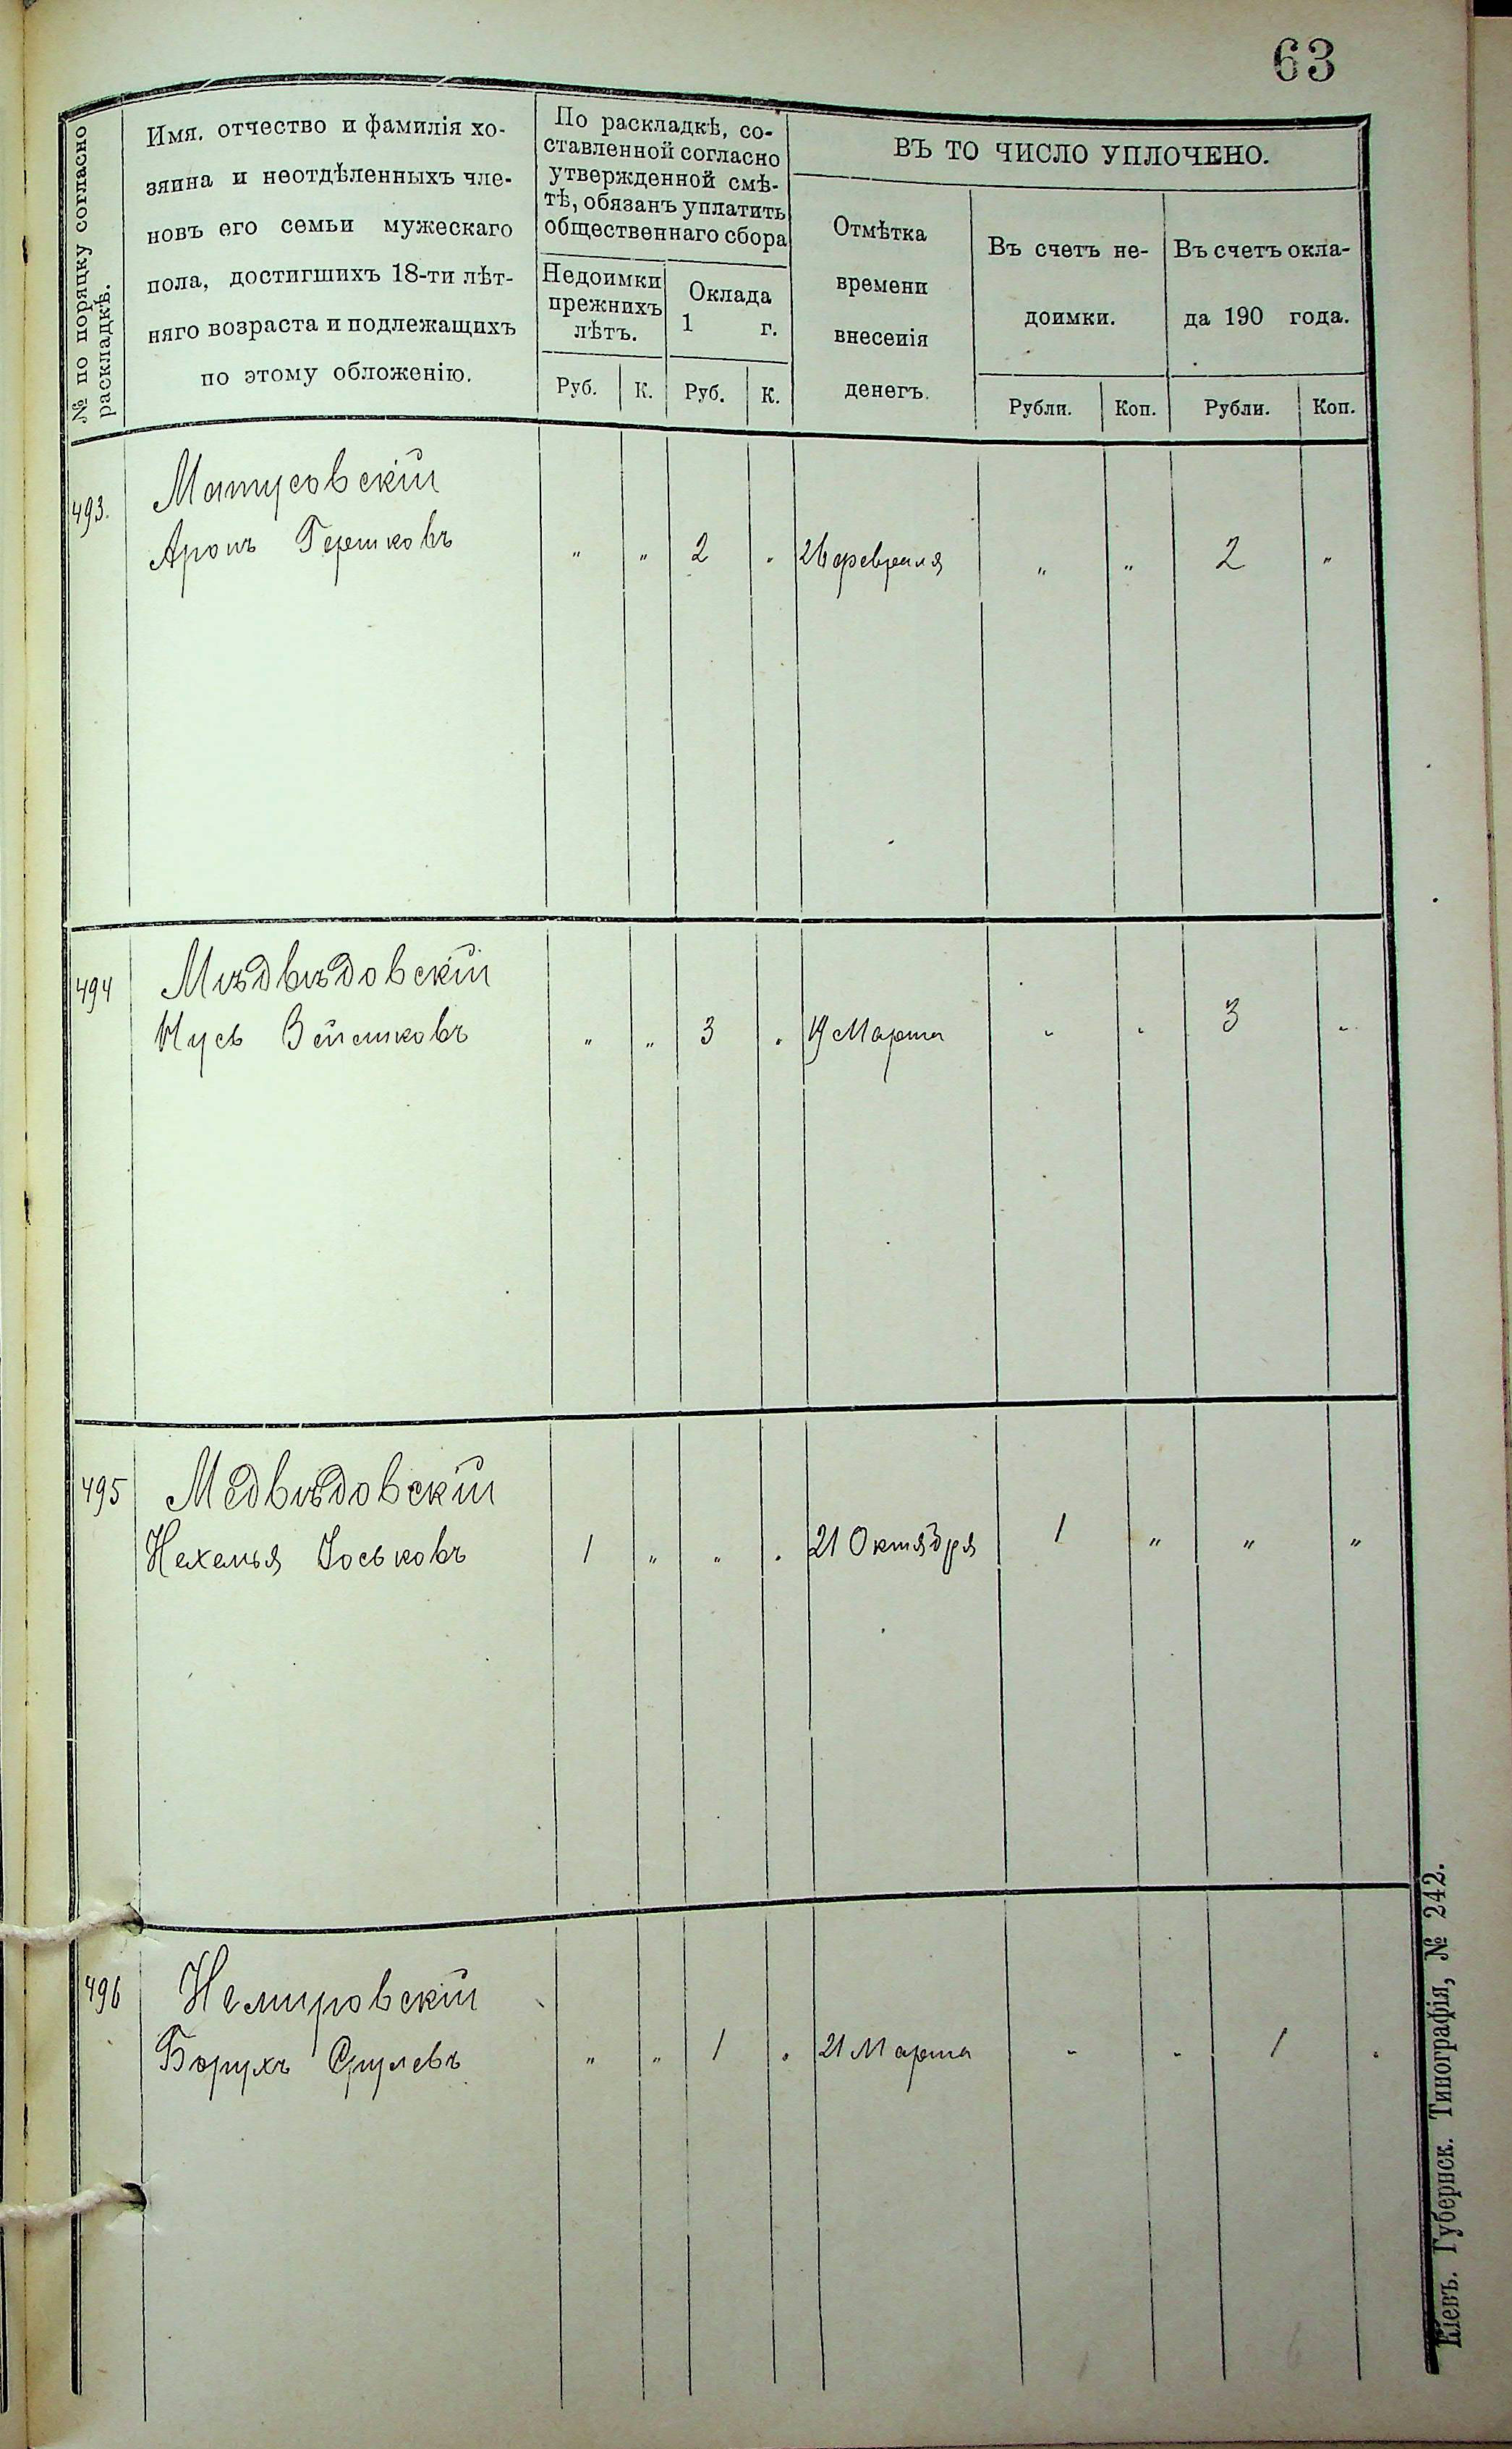 63
№ по порядку согласно
раскладкѣ.
Имя, отчество и фамилія хо-
зяина и неотдѣленныхъ чле-
новъ его семьи мужескаго
пола, достигшихъ 18-ти лѣт-
няго возраста и подлежащихъ
по этому обложенію.
По раскладкѣ, со-
ставленной согласно
утвержденной смѣ-
тѣ, обязанъ уплатить
общественнаго сбора
Недоимки
прежнихъ
лѣтъ.
Оклада
1 г.
Руб. К. Руб. К.
ВЪ ТО ЧИСЛО УПЛОЧЕНО.
Отмѣтка
времени
внесенія
денегъ.
Въ счетъ не-
доимки.
Въ счетъ окла-
да 190 года.
Рубли. Коп. Рубли. Коп.
493. Матусовскій
Аронъ Гершковъ " " 2 " 26 февраля " " 2 "
494 Мѣдвѣдовскій
Нусь " " 3 " 19 Марта " " 3 "
495 Медвѣдовскій
Нехемья Іоськовъ 1 " " " 21 Октября 1 " " "
496 Немировскій
Борухъ Срулевъ " " 1 " 21 Марта " " 1 "
Кіевъ. Губернск. Типографія, № 242.